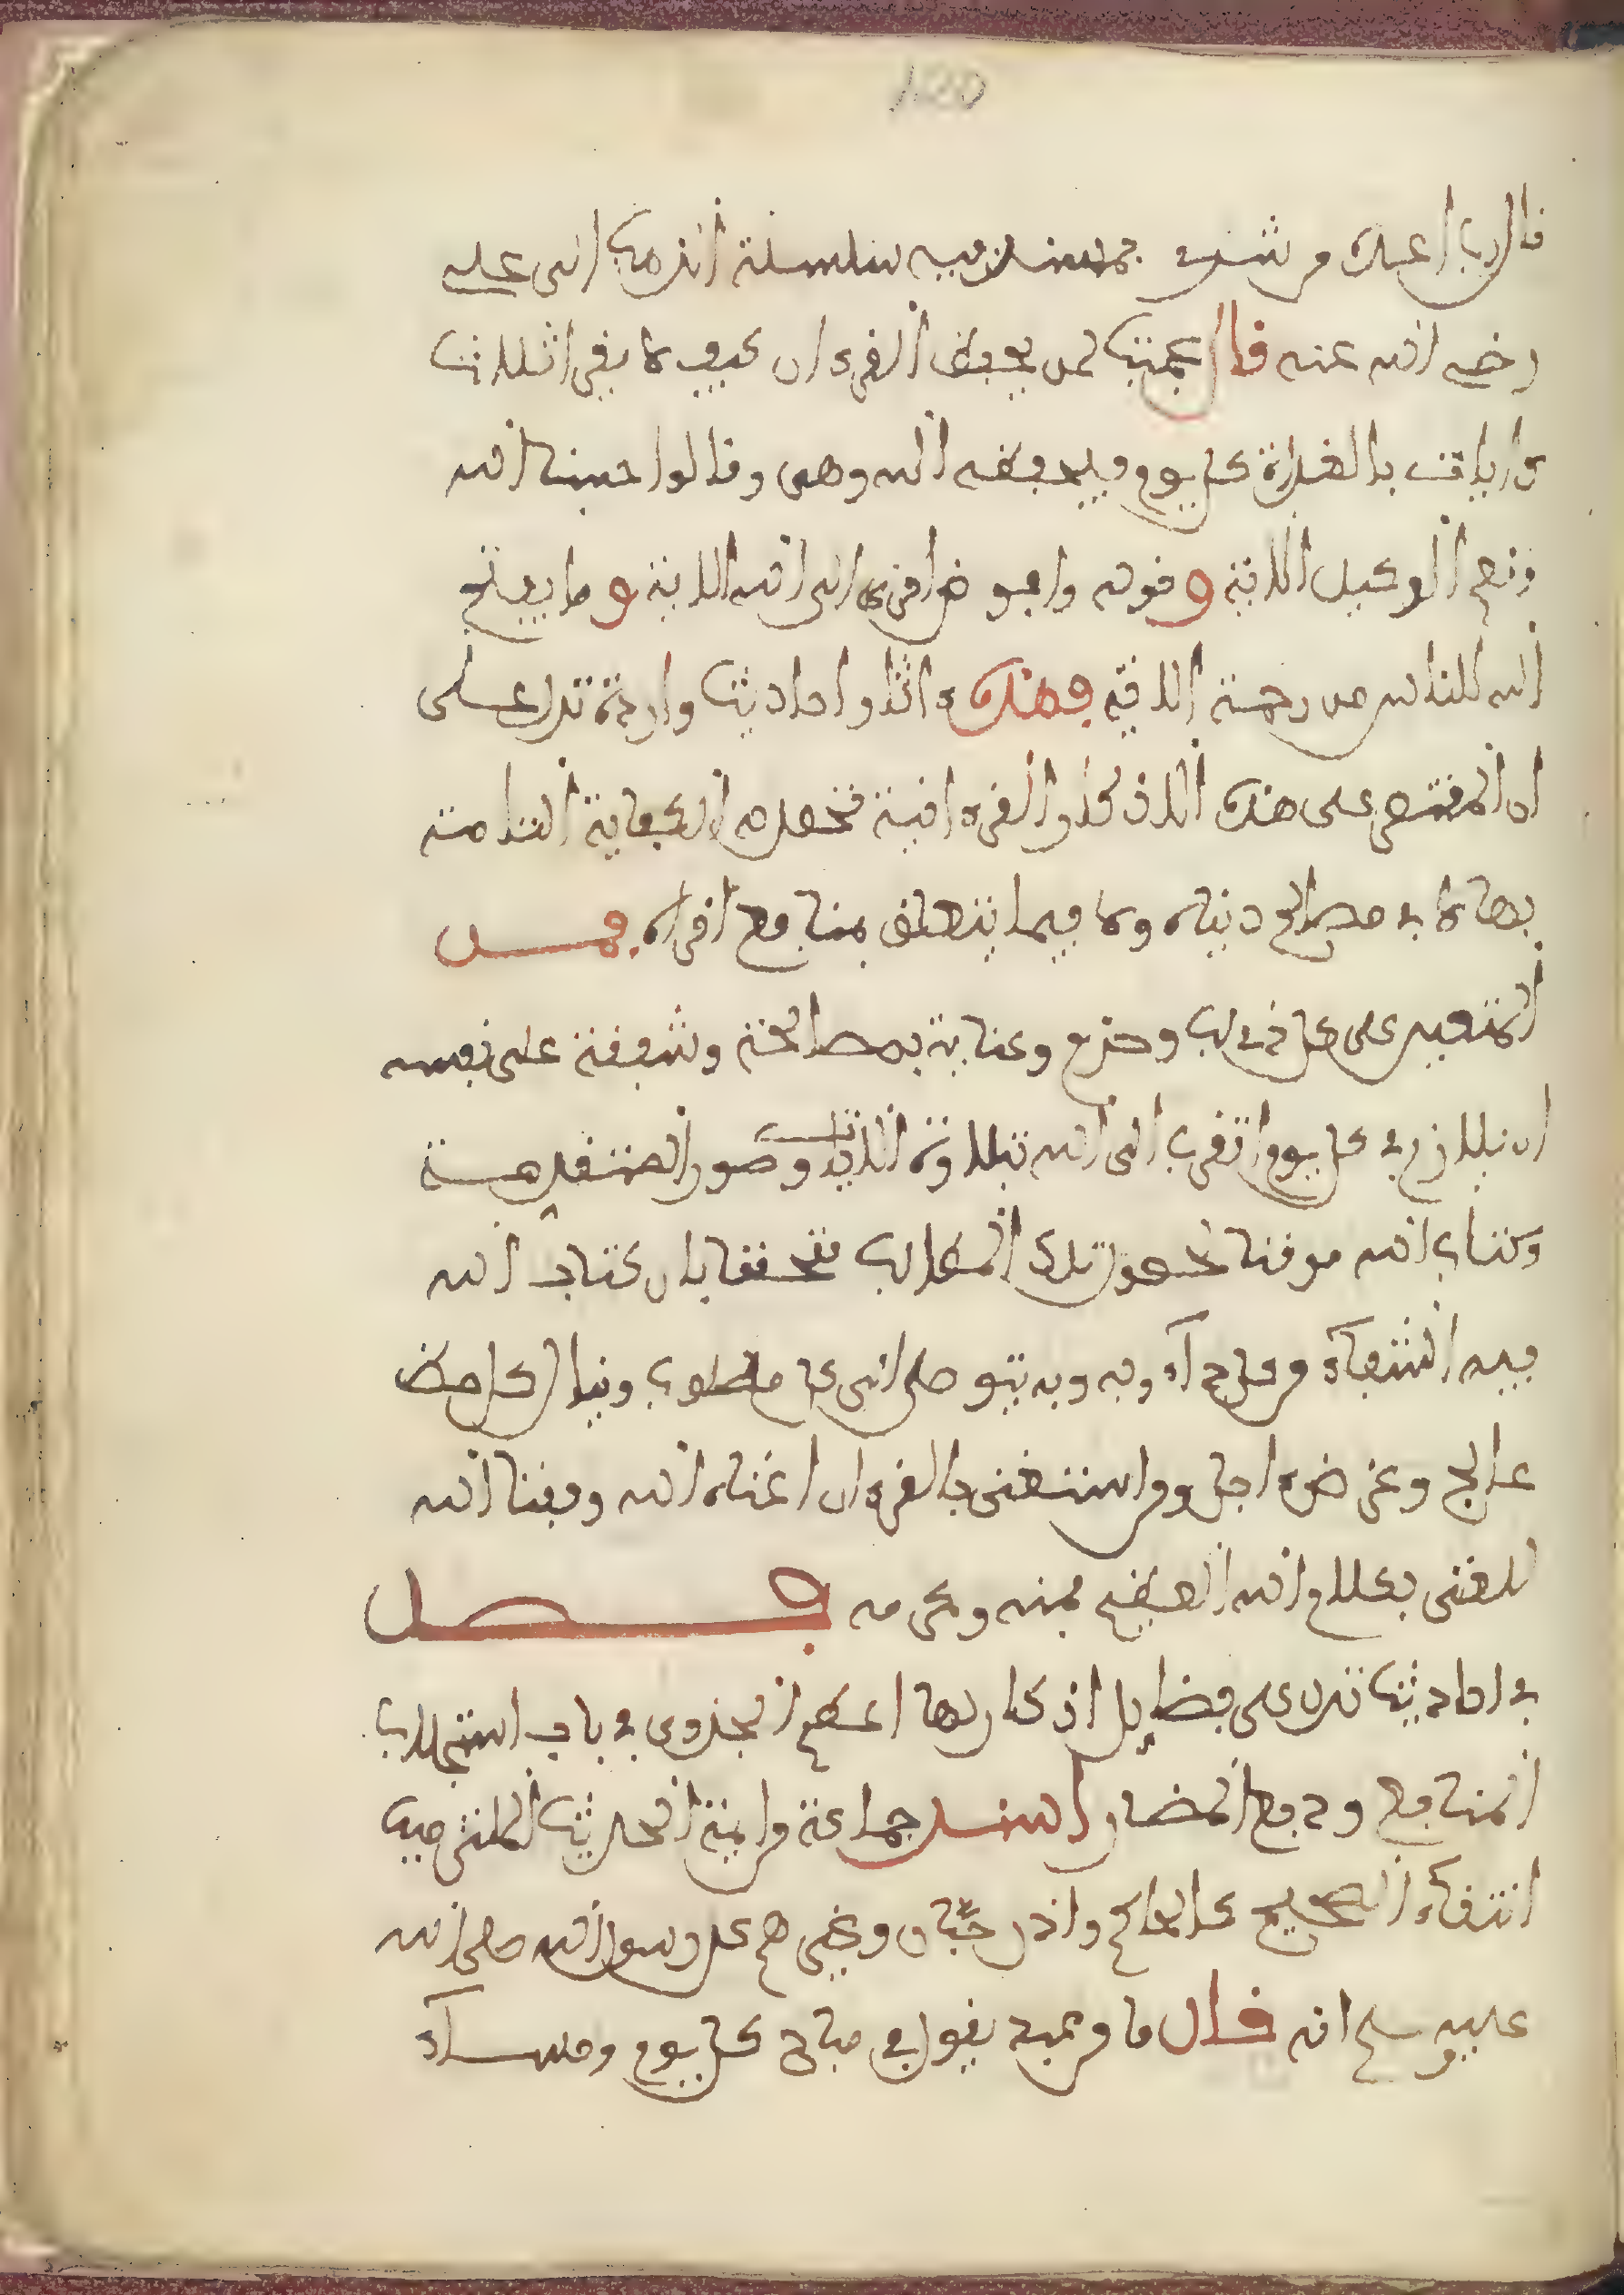 180
قال رب اعباد من شي بسلسلة الذهب الى علي
رضي الله عنه قال عجبت لمن يحفظ القرءان كيف لا يقرا ثلاث
ءايات بالغداة كل يوم فيحفظه الله وهي وقالوا حسبنا الله
ونعم الوكيل الاية و قوله وافوض امري الى الله الاية و ما يفتح
الله للناس من رحمة الاية فهذه اثار واحاديث واردة تدل على
ان المقتصر على هذه الاذكار القرءانية تحصل له الكفاية التامة
بها لا في مصالح دنياه ولا فيما يتعلق بمنافع اخراه فمن
المتعين على كل ذي لب وحزم وعناية بمصالحه وشفقة على نفسه
ان يلازم في كل يوم التقرب الى الله بتلاوة الايات وصور المتقدمة
وكتاب الله موقنا بحصول تلك المطالب متحققا بان كتاب الله
فيه الشفاء من كل داء وبه وبه يتوصل الى كل مطلوب وينال كل حظ
عاجل وغرض ءاجل ومن استغنى بالقرءان اغناه الله وفقنا الله
للغنى بكلام الله العظيم بمنه وكرمه فصل
في احاديث تدل على فضايل اذكار لها اعظم الجدوى في باب استجلاب
المنافع ودفع المضار اسند جماعة من ايمة الحديث الملتزمين
انتقاء الصحيح كالحاكم وابن حبان وغيرهم عن رسول الله صلى الله
عليه وسلم انه قال ما من عبد يقول في صباح كل يوم ومساء